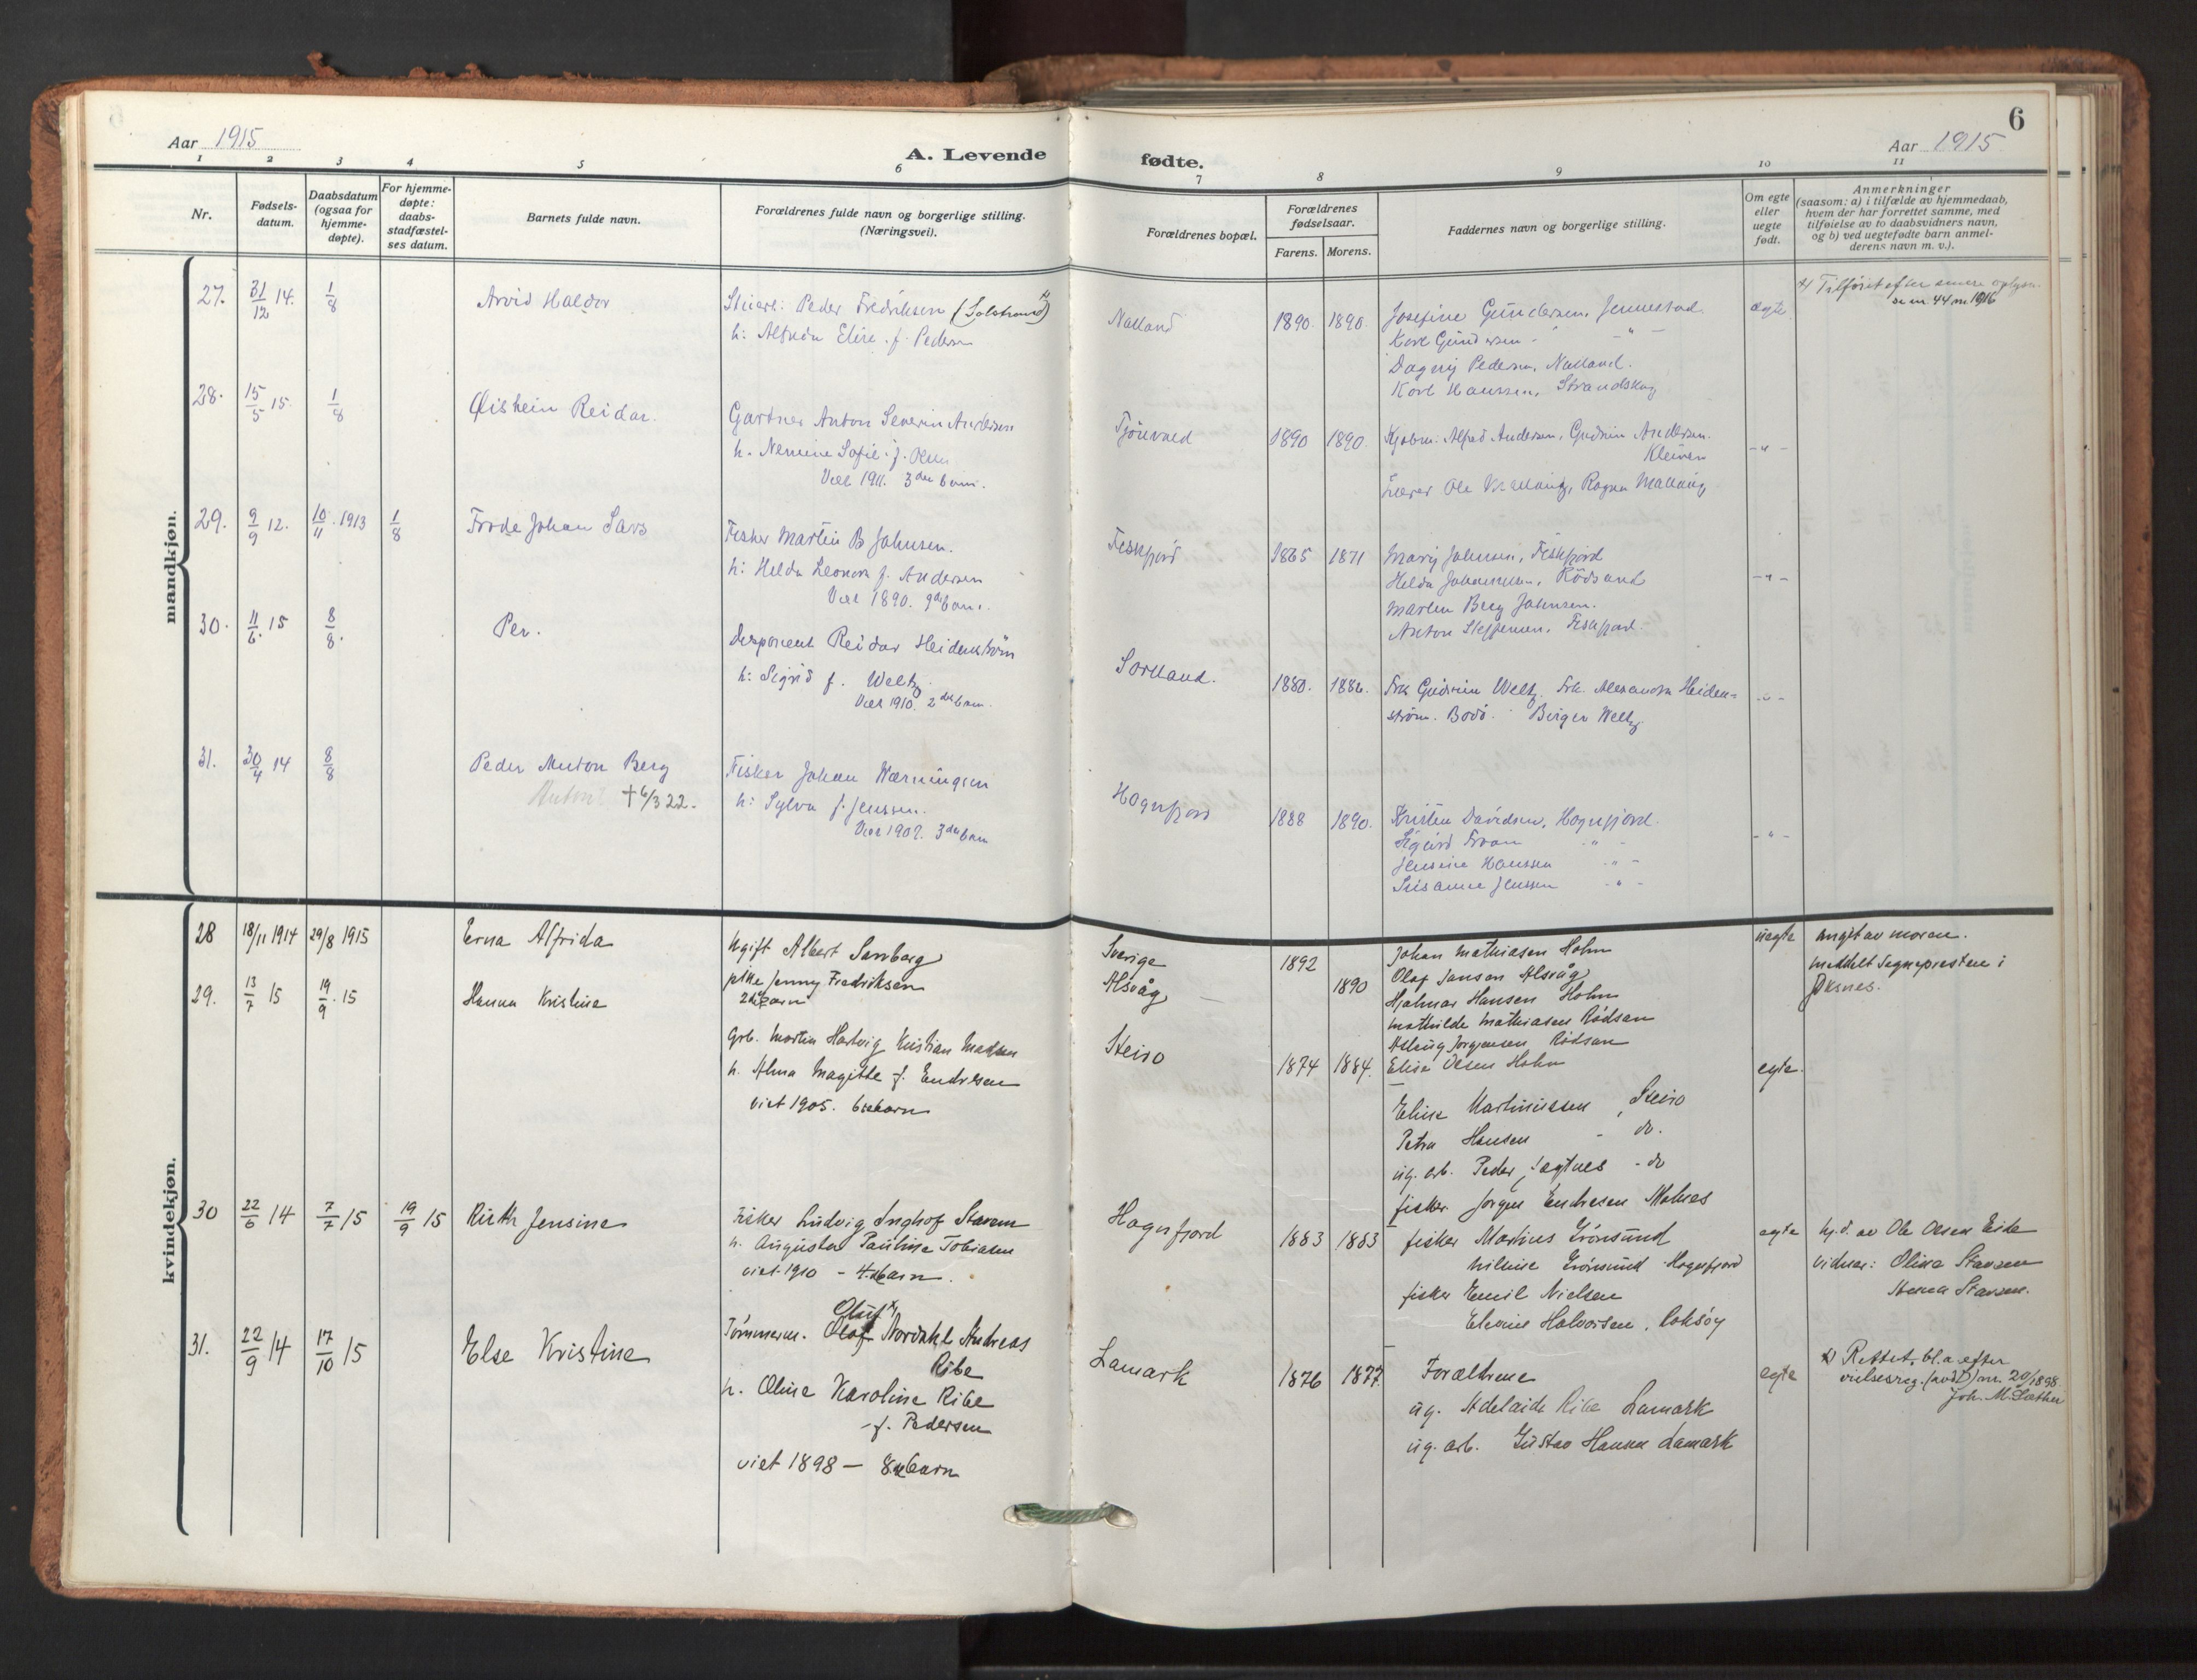 6
Aar 1915
A. Levende
fødte.
Aar 1915
1 2 3 4 5 6 7 8 9 10 11
Nr.
Fødsels-
datum.
Daabsdatum
(ogsaa for
hjemme-
døpte).
For hjemme-
døpte:
daabs-
stadfæstel-
ses datum.
Barnets fulde navn.
Forældrenes fulde navn og borgerlige stilling.
(Næringsvei).
Forældrenes bopæl.
Forældrenes
fødselsaar.
Farens. Morens.
Faddernes navn og borgerlige stilling.
Om egte
eller
uegte
født.
Anmerkninger
(saasom: a) i tilfælde av hjemmedaab,
hvem der har forrettet samme, med
tilføielse av to daabsvidners navn,
og b) ved uegtefødte barn anmel-
derens navn m. v.).
mandkjøn.
27. 31/12 14. 1/8 Arvid Haldor
Peder Fredriksen (Solstrand)
h: Elise f. Pedersen
1890. 1890.
Josefine Gundersen, Jennestad.
Karl Gundersen - " -
Dagny Pedersen,
Karl Hanssen,
egte
Tilføiet efter senere
44 1916
28. 15/5 15. 1/8 Øistein Reidar.
Gartner Anton Severin Andersen
h. Sofie f. Olsen
Viet 1911. 3die barn.
1890 1890.
Alfred Andersen, Gudrun Andersen.
Kleiven
Lærer Ole
- " -
29. 9/9 12. 10/11 1913 1/8 Frode Johan Lars
Fisker Martin B Johnsen.
h: Helda f. Andersen
Viet 1890. 9de barn.
Fiskfjord
1865 1871
Johnsen, Fiskfjord
Helda Rødsand
Martin Berg Johnsen.
Anton Steffensen, Fiskfjord.
- " -
30. 11/6. 15 8/8. Per.
Disponent Reidar Heidenstrøm
h: Sigrid f. Weltz
Viet 1910. 2det barn.
Sortland.
1880. 1886.
Frk Gudrun Weltz. Frk. Alexandra Heiden=
strøm. Bodø. Birger Weltz.
- " -
31. 30/4 14 8/8 Peder Anton Berg
Anton † 6/3 22.
Fisker Johan Wærningsen
h: Sylva f. Jenssen.
Viet 3die barn
Hognfjord
1888 1890.
Kristen Davidsen, Hognfjord.
Sigurd " -
Jensine Hanssen " -
Susanne Jenssen " -
- " -
kvindekjøn.
28 18/11 1914 29/8 1915 Erna Alfrida
Ugift Albert Sandberg
pike Jenny Fredriksen
2det barn
Sverige
Alsvåg
1892
1890
Johan Mathiasen Holm
Olaf Jansen Alsvåg
Hjalmar Hansen Holm
Mathilde Mathiasen Rødsan
Aslaug Jørgensen Rødsan
Elise Olsen Holm
uegte
angit av moren.
meddelt Sogneprsten i
Øksnes.
29. 13/7 15 19/9. 15 Hanna Kristine
Grb. Morten Hartvig Kristian Madsen
h. Alma Magitte f. Endresen
viet 1905. 6te barn
Steiro
1874 1884.
Eline Martinussen, Steiro
Petra Hansen - do.
ug. arb. Peder - do
fisker Jørgen Endresen
egte.
30 22/6 14 7/7 15 19/9 15 Ruth Jensine
Fisker Ludvig Inghof Stavem
h. Augusta Pauline Tobiasen
viet 1910 - 4de barn.
Hognfjord
1883 1883
fisker Martius Grönsund
Grönsund Hognfjord
fisker Emil Nielsen
Halvorsen,
egte
hj.d. av Ole Olsen Eide
vidner: Olina Stavem
Stavem.
31. 22/9 14 17/10 15 Else Kristine
Oluf x
Tømmerm. Olaf Nordahl Andreas
Ribe
h. Oline Karoline Ribe
f. Pedersen
viet 1898 - 8de barn
Lamark
1876 1877.
Forældrene
ug. Adelaide Ribe Lamark
ug. arb. Gustav Lamark
egte
x) Rettet, bl.a. efter
vielsesreg. nr. 20/1898.
Joh. M. Sæther